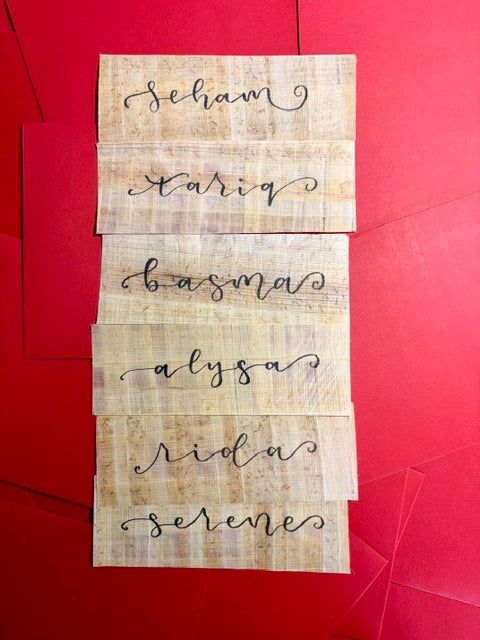 seham
tariq
basma
alysa
rida
serene